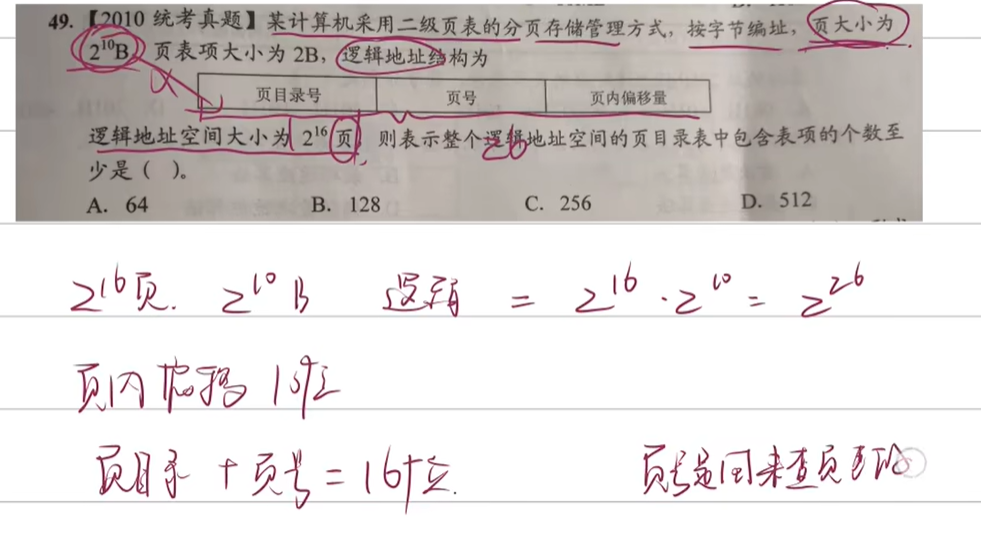 49. 【2010 统考真题】某计算机采用二级页表的分页存储管理方式，按字节编址，页大小为
2¹⁰B，页表项大小为 2B，逻辑地址结构为
页目录号 页号 页内偏移量
逻辑地址空间大小为 2¹⁶ 页，则表示整个逻辑地址空间的页目录表中包含表项的个数至
少是（ ）。
26
A. 64 B. 128 C. 256 D. 512
2¹⁶页. 2¹⁰B 逻辑 = 2¹⁶·2¹⁰ = 2²⁶
页内偏移 10位
页目录 + 页号 = 16位. 页号是用来查页表的